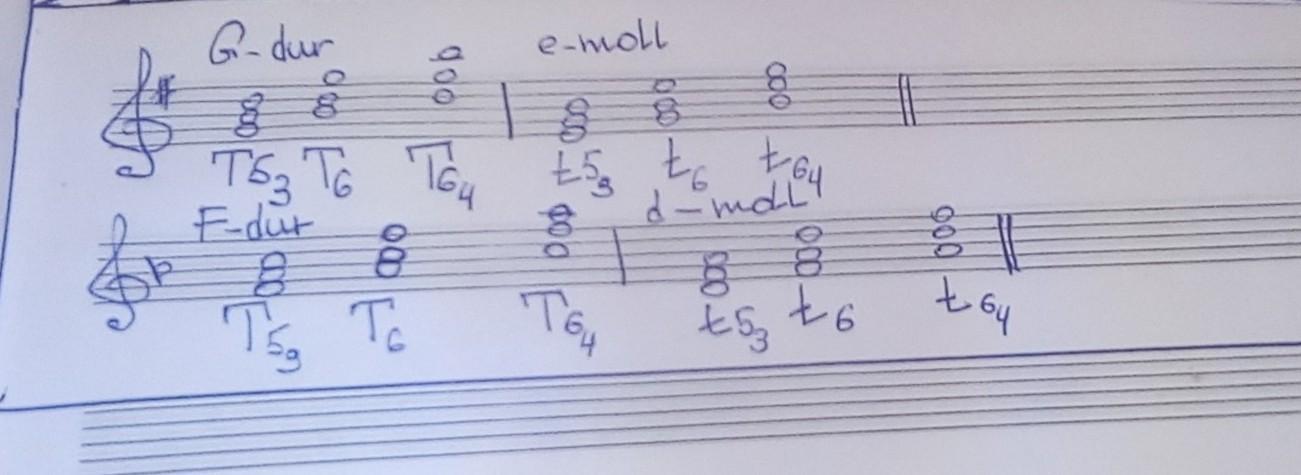 G-dur e-moll
T53 T6 T64 t53 t6 t64
F-dur d-moll
T53 T6 T64 t53 t6 t64